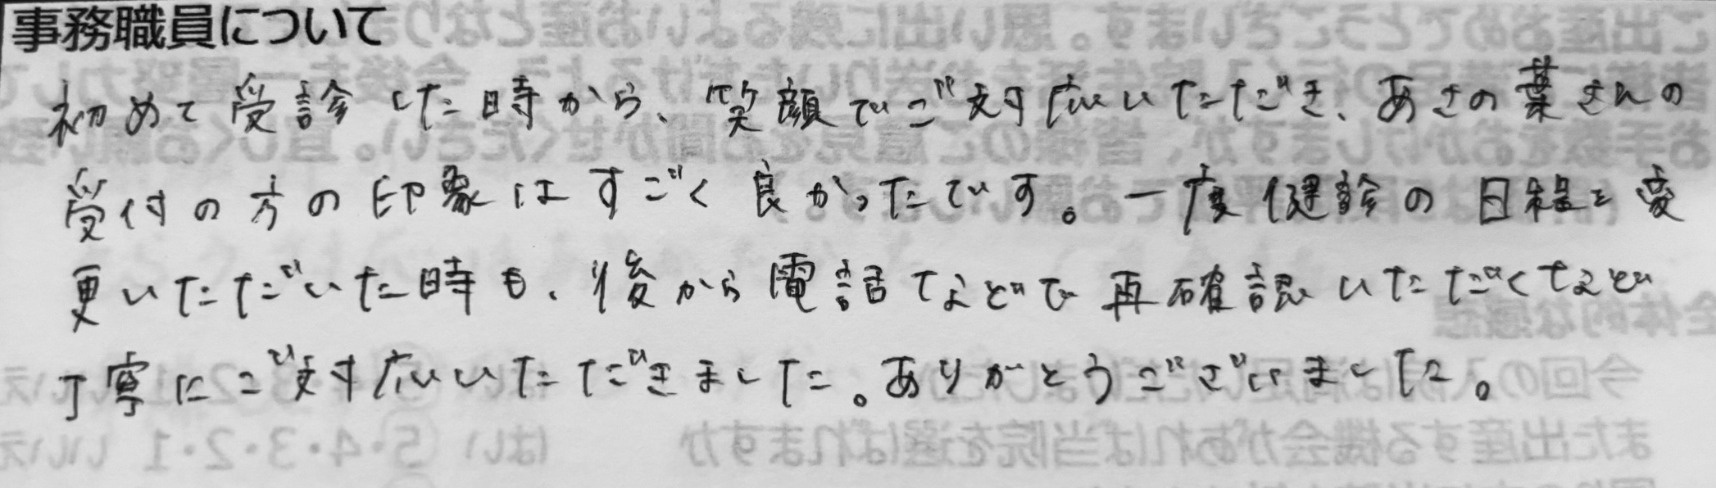 事務職員について
初めて受診した時から、笑顔でご対応いただき、あさの葉さんの
受付の方の印象はすごく良かったです。一度健診の日程を変
更いただいた時も、後から電話などで再確認いただくなど
丁寧にご対応いただきました。ありがとうございました。